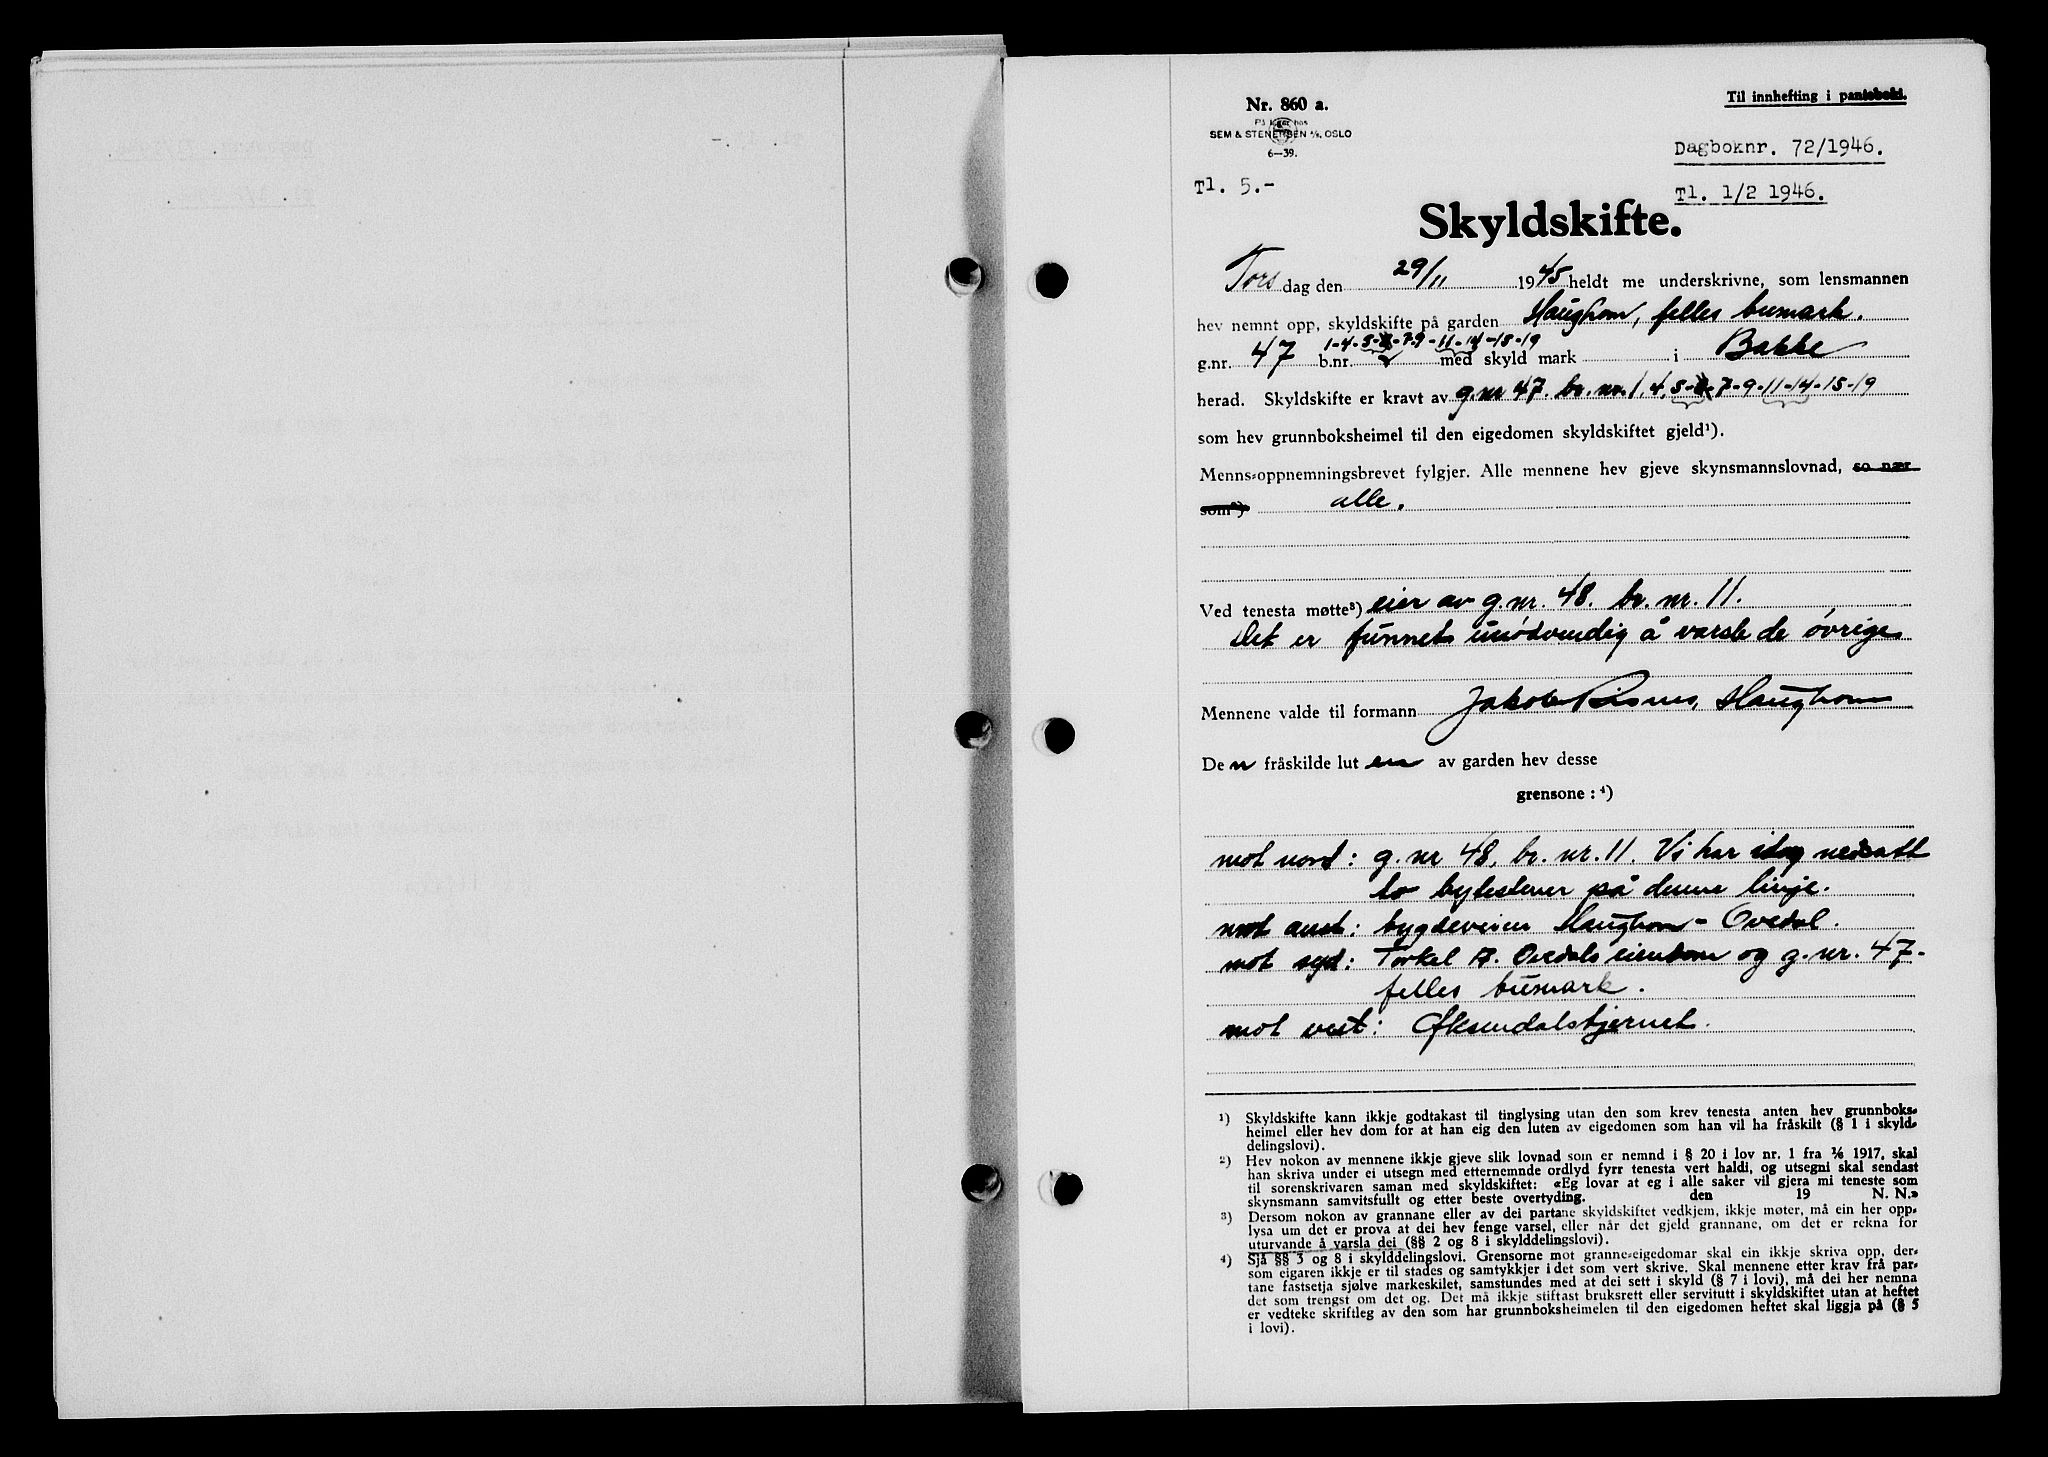 Til innhefting i pantebok.
Nr. 860 a.
På lager hos
SEM & STENERSEN A/S, OSLO
6—39.
Dagboknr. 72/1946.
Tl. 5.-
Tl. 1/2 1946.
Skyldskifte.
Tors dag den 29/11 1945 heldt me underskrivne, som lensmannen
hev nemnt opp, skyldskifte på garden Haughom, felles bumark.
g.nr. 47 b.nr. 1-4-5-7-9-11-14-15-19 med skyld mark i Bakke
herad. Skyldskifte er kravt av g.nr 47. br. nr. 1, 4, 5-7-9-11-14-15-19
som hev grunnboksheimel til den eigedomen skyldskiftet gjeld¹).
Menns-oppnemningsbrevet fylgjer. Alle mennene hev gjeve skynsmannslovnad, so nær
som²) alle.
Ved tenesta møtte³) eier av g.nr. 48. br. nr. 11.
Det er funnet unødvendig å varsle de øvrige
Mennene valde til formann Jakob Risnes, Haughom
Den fråskilde lut en av garden hev desse
grensone: ⁴)
mot nord: g. nr 48, br. nr. 11. Vi har idag nedsatt
to bytestener på denne linje.
mot aust: bygdeveien Haughom - Ovedal.
mot syd: Torkel A. Ovedals eiendom og g. nr. 47-
felles bumark.
mot vest: Øksendalstjernet.
¹) Skyldskifte kann ikkje godtakast til tinglysing utan den som krev tenesta anten hev grunnboks-
heimel eller hev dom for at han eig den luten av eigedomen som han vil ha fråskilt (§ 1 i skyld-
delingslovi).
²) Hev nokon av mennene ikkje gjeve slik lovnad som er nemnd i § 20 i lov nr. 1 fra 1/6 1917, skal
han skriva under ei utsegn med etternemnde ordlyd fyrr tenesta vert haldi, og utsegni skal sendast
til sorenskrivaren saman med skyldskiftet: «Eg lovar at eg i alle saker vil gjera mi teneste som
skynsmann samvitsfullt og etter beste overtyding. den 19 N. N.»
³) Dersom nokon av grannane eller av dei partane skyldskiftet vedkjem, ikkje møter, må ein her opp-
lysa um det er prova at dei hev fenge varsel, eller når det gjeld grannane, om det er rekna for
uturvande å varsla dei (§§ 2 og 8 i skylddelingslovi).
⁴) Sjå §§ 3 og 8 i skylddelingslovi. Grensorne mot granne-eigedomar skal ein ikkje skriva opp, der-
som eigaren ikkje er til stades og samtykkjer i det som vert skrive. Skal mennene etter krav frå par-
tane fastsetja sjølve markeskilet, samstundes med at dei sett i skyld (§ 7 i lovi), må dei her nemna
det som trengst om det og. Det må ikkje stiftast bruksrett eller servitutt i skyldskiftet utan at heftet
er vedteke skriftleg av den som har grunnboksheimelen til den eigedomen heftet skal liggja på (§ 5
i lovi).